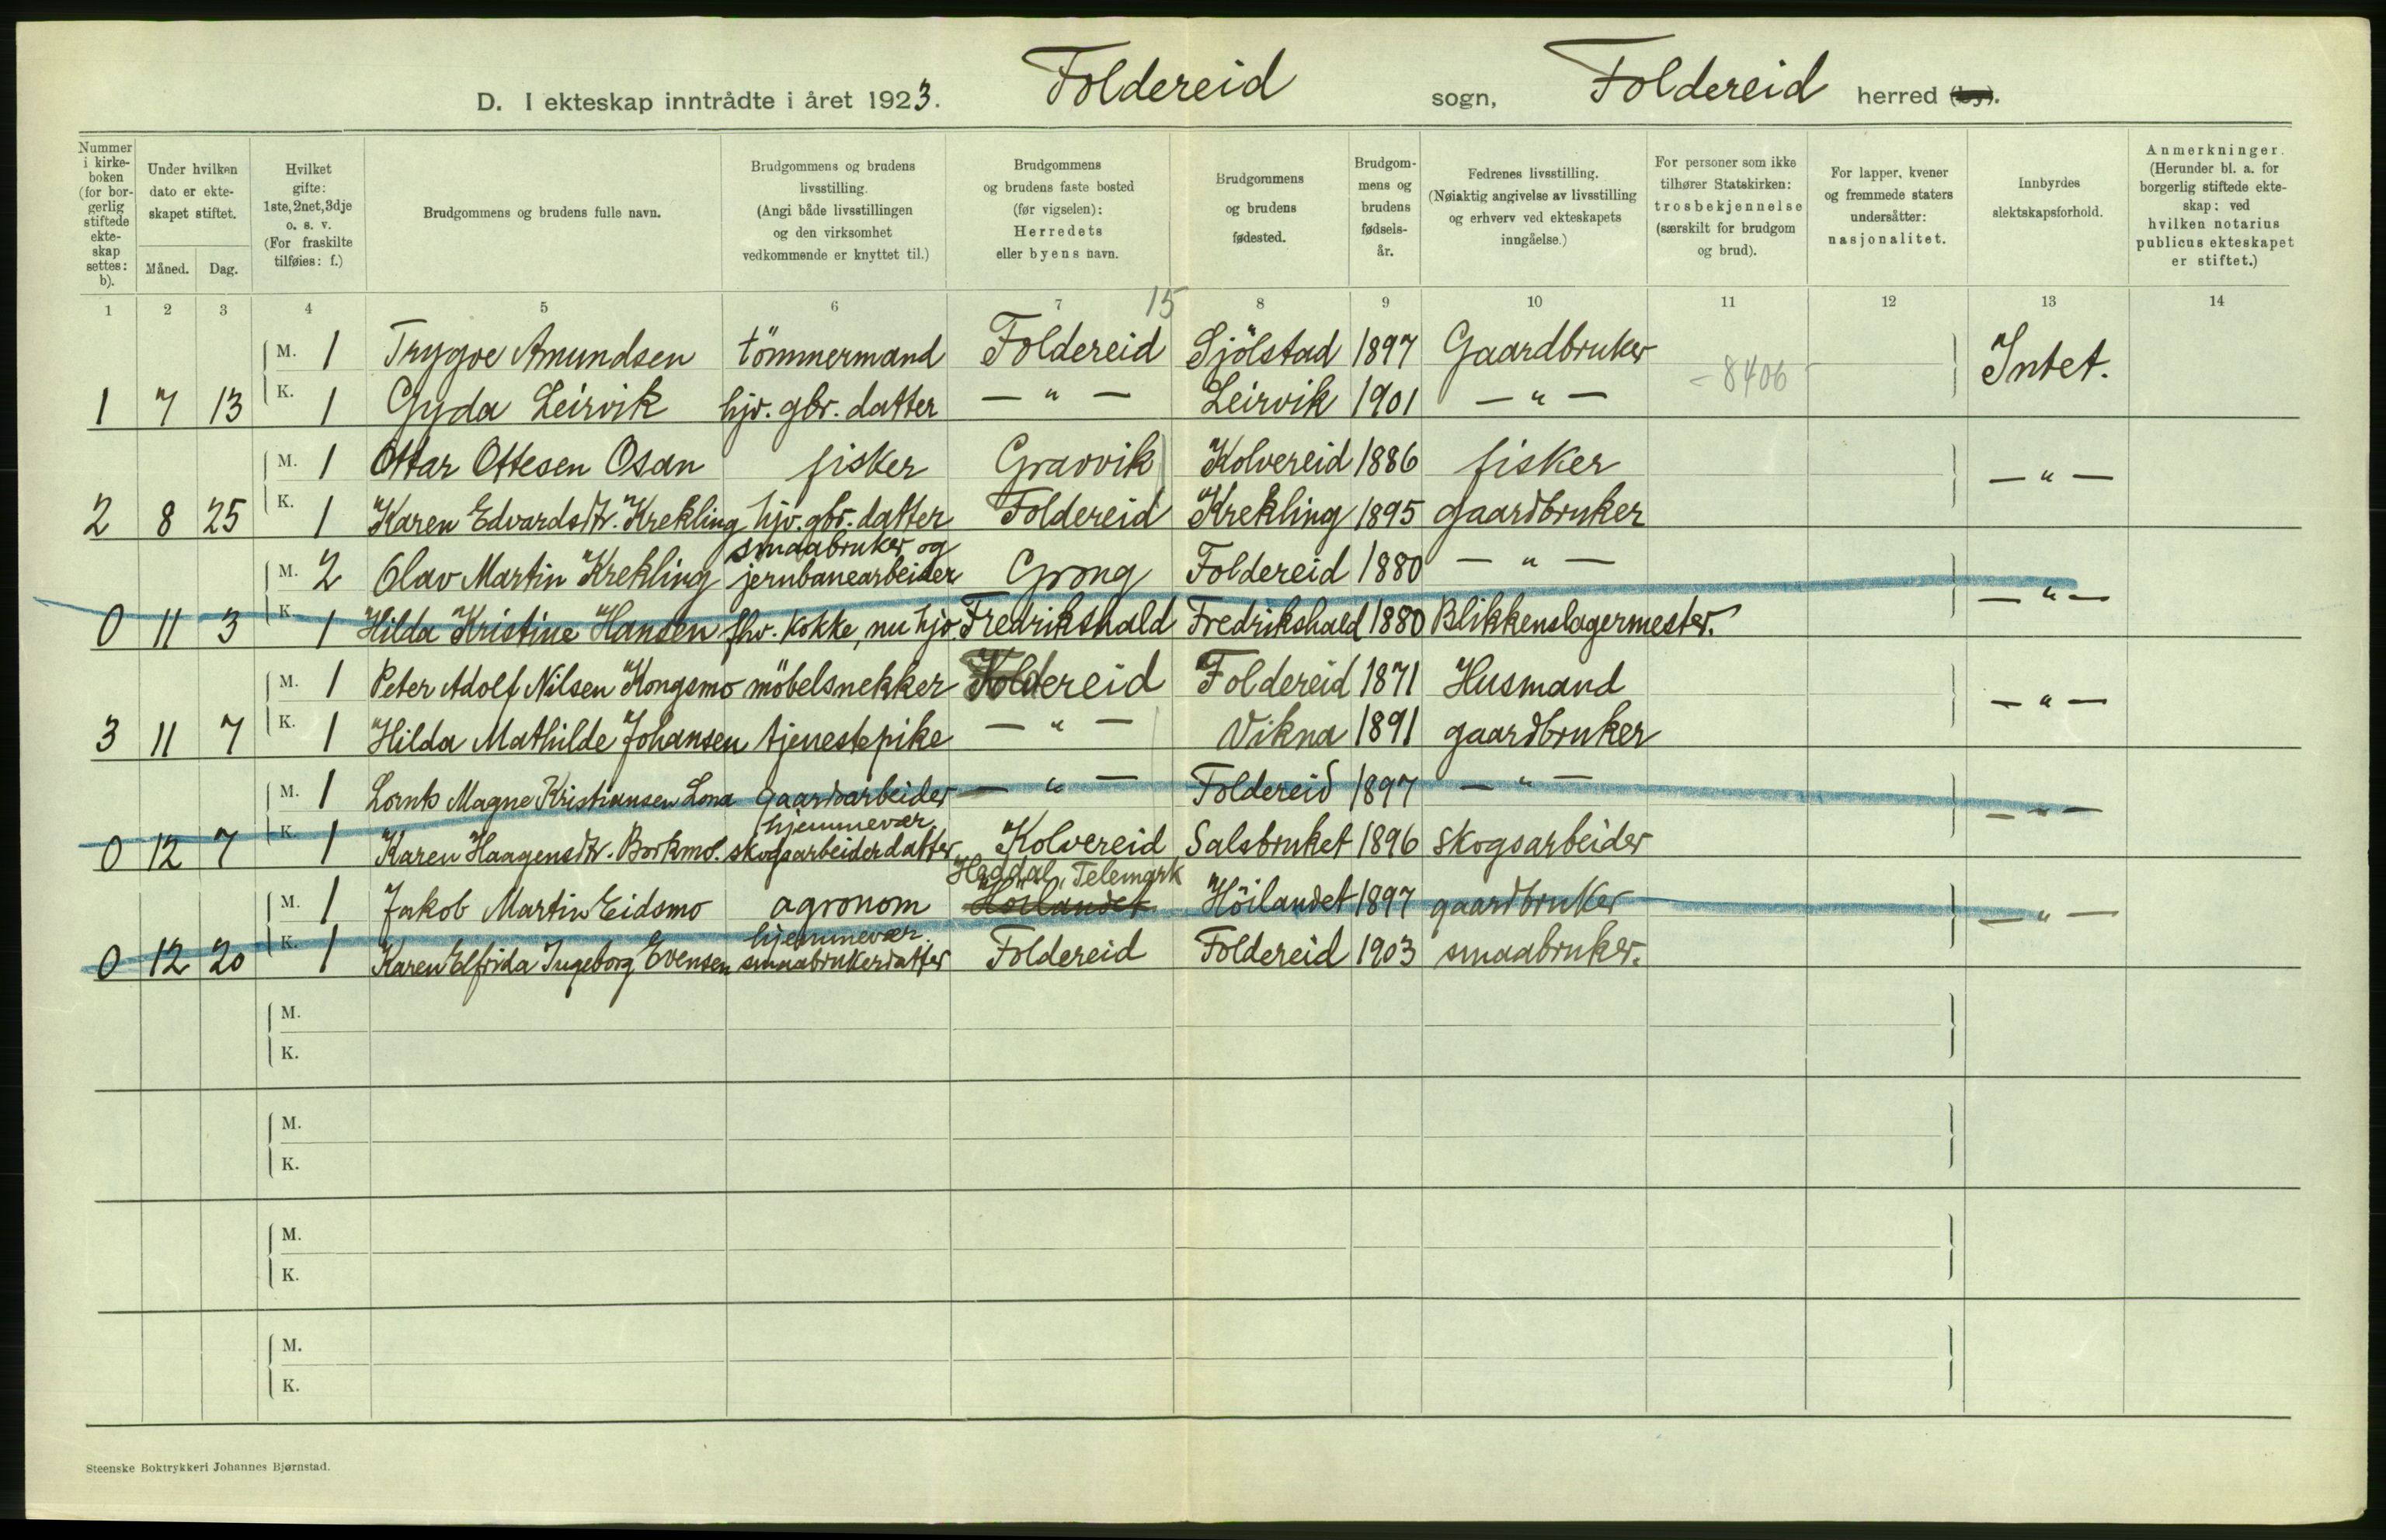 D. I ekteskap inntrådte i året 1923. Foldereid sogn, Foldereid herred (by).
Nummer i kirkeboken (for borgerlig stiftede ekteskap settes: b).
Under hvilken dato er ekteskapet stiftet.
Måned. Dag.
Hvilket gifte: 1ste, 2net, 3dje o. s. v. (For fraskilte tilføies: f.)
Brudgommens og brudens fulle navn.
Brudgommens og brudens livsstilling. (Angi både livsstillingen og den virksomhet vedkommende er knyttet til.)
Brudgommens og brudens faste bosted (før vigselen): Herredets eller byens navn.
Brudgommens og brudens fødested.
Brudgommens og brudens fødselsår.
Fedrenes livsstilling. (Nøiaktig angivelse av livsstilling og erhverv ved ekteskapets inngåelse.)
For personer som ikke tilhører Statskirken: trosbekjennelse (særskilt for brudgom og brud).
For lapper, kvener og fremmede staters undersåtter: nasjonalitet.
Innbyrdes slektskapsforhold.
Anmerkninger. (Herunder bl. a. for borgerlig stiftede ekteskap: ved hvilken notarius publicus ekteskapet er stiftet.)
1 2 3 4 5 6 7 15 8 9 10 11 12 13 14
M. 1 Trygve Amundsen tömmermand Foldereid Sjölstad 1897 Gaardbruker Intet.
1 7 13 K. 1 Gyda Leirvik hjv. gbr. datter — " — Leirvik 1901 — " — - 8406
M. 1 Ottar Ottesen Osan fisker Gravvik Kolvereid 1886 fisker — " —
2 8 25 K. 1 Karen Edvardsdtr. Krekling hjv. gbr. datter Foldereid Krekling 1895 gaardbruker
smaabruker og
M. 2 Olav Martin Krekling jernbanearbeider Grong Foldereid 1880 — " — — " —
0 11 3 K. 1 Hilda Kristine Hansen fhv. kokke, nu hjv Fredrikshald Fredrikshald 1880 Blikkenslagermester.
M. 1 Peter Adolf Nilsen Kongsmo möbelsnekker Foldereid Foldereid 1871 Husmand — " —
3 11 7 K. 1 Hilda Mathilde Johansen tjenestepike — " — Vikna 1891 gaardbruker
M. 1 Lornts Magne Kristiansen Lona Gaardarbeider — " — Foldereid 1897 — " — — " —
hjemmevær.
0 12 7 K. 1 Karen Haagensdtr. Borkmo. skogsarbeiderdatter Kolvereid Salsbruket 1896 skogsarbeider
Heddal, Telemark
M. 1 Jakob Martin Eidsmo agronom Höilandet Höilandet 1897 gaardbruker — " —
hjemmevær.
0 12 20 K. 1 Karen Elfrida Ingeborg Evensen smaabrukerdatter Foldereid Foldereid 1903 smaabruker.
M.
K.
M.
K.
M.
K.
M.
K.
Steenske Boktrykkeri Johannes Bjørnstad.